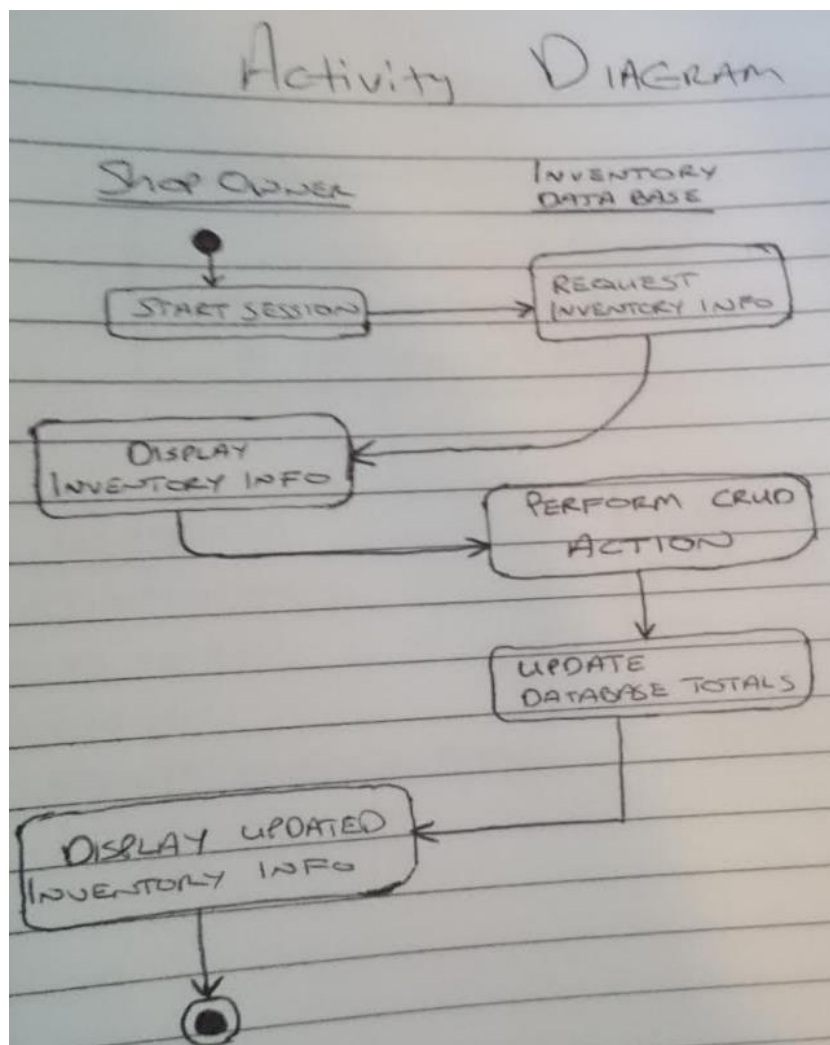 Activity DIAGRAM
Shop OWNER
INVENTORY
DATA BASE
START SESSION
REQUEST
INVENTORY INFO
DISPLAY
INVENTORY INFO
PERFORM CRUD
ACTION
UPDATE
DATABASE TOTALS
DISPLAY UPDATED
INVENTORY INFO